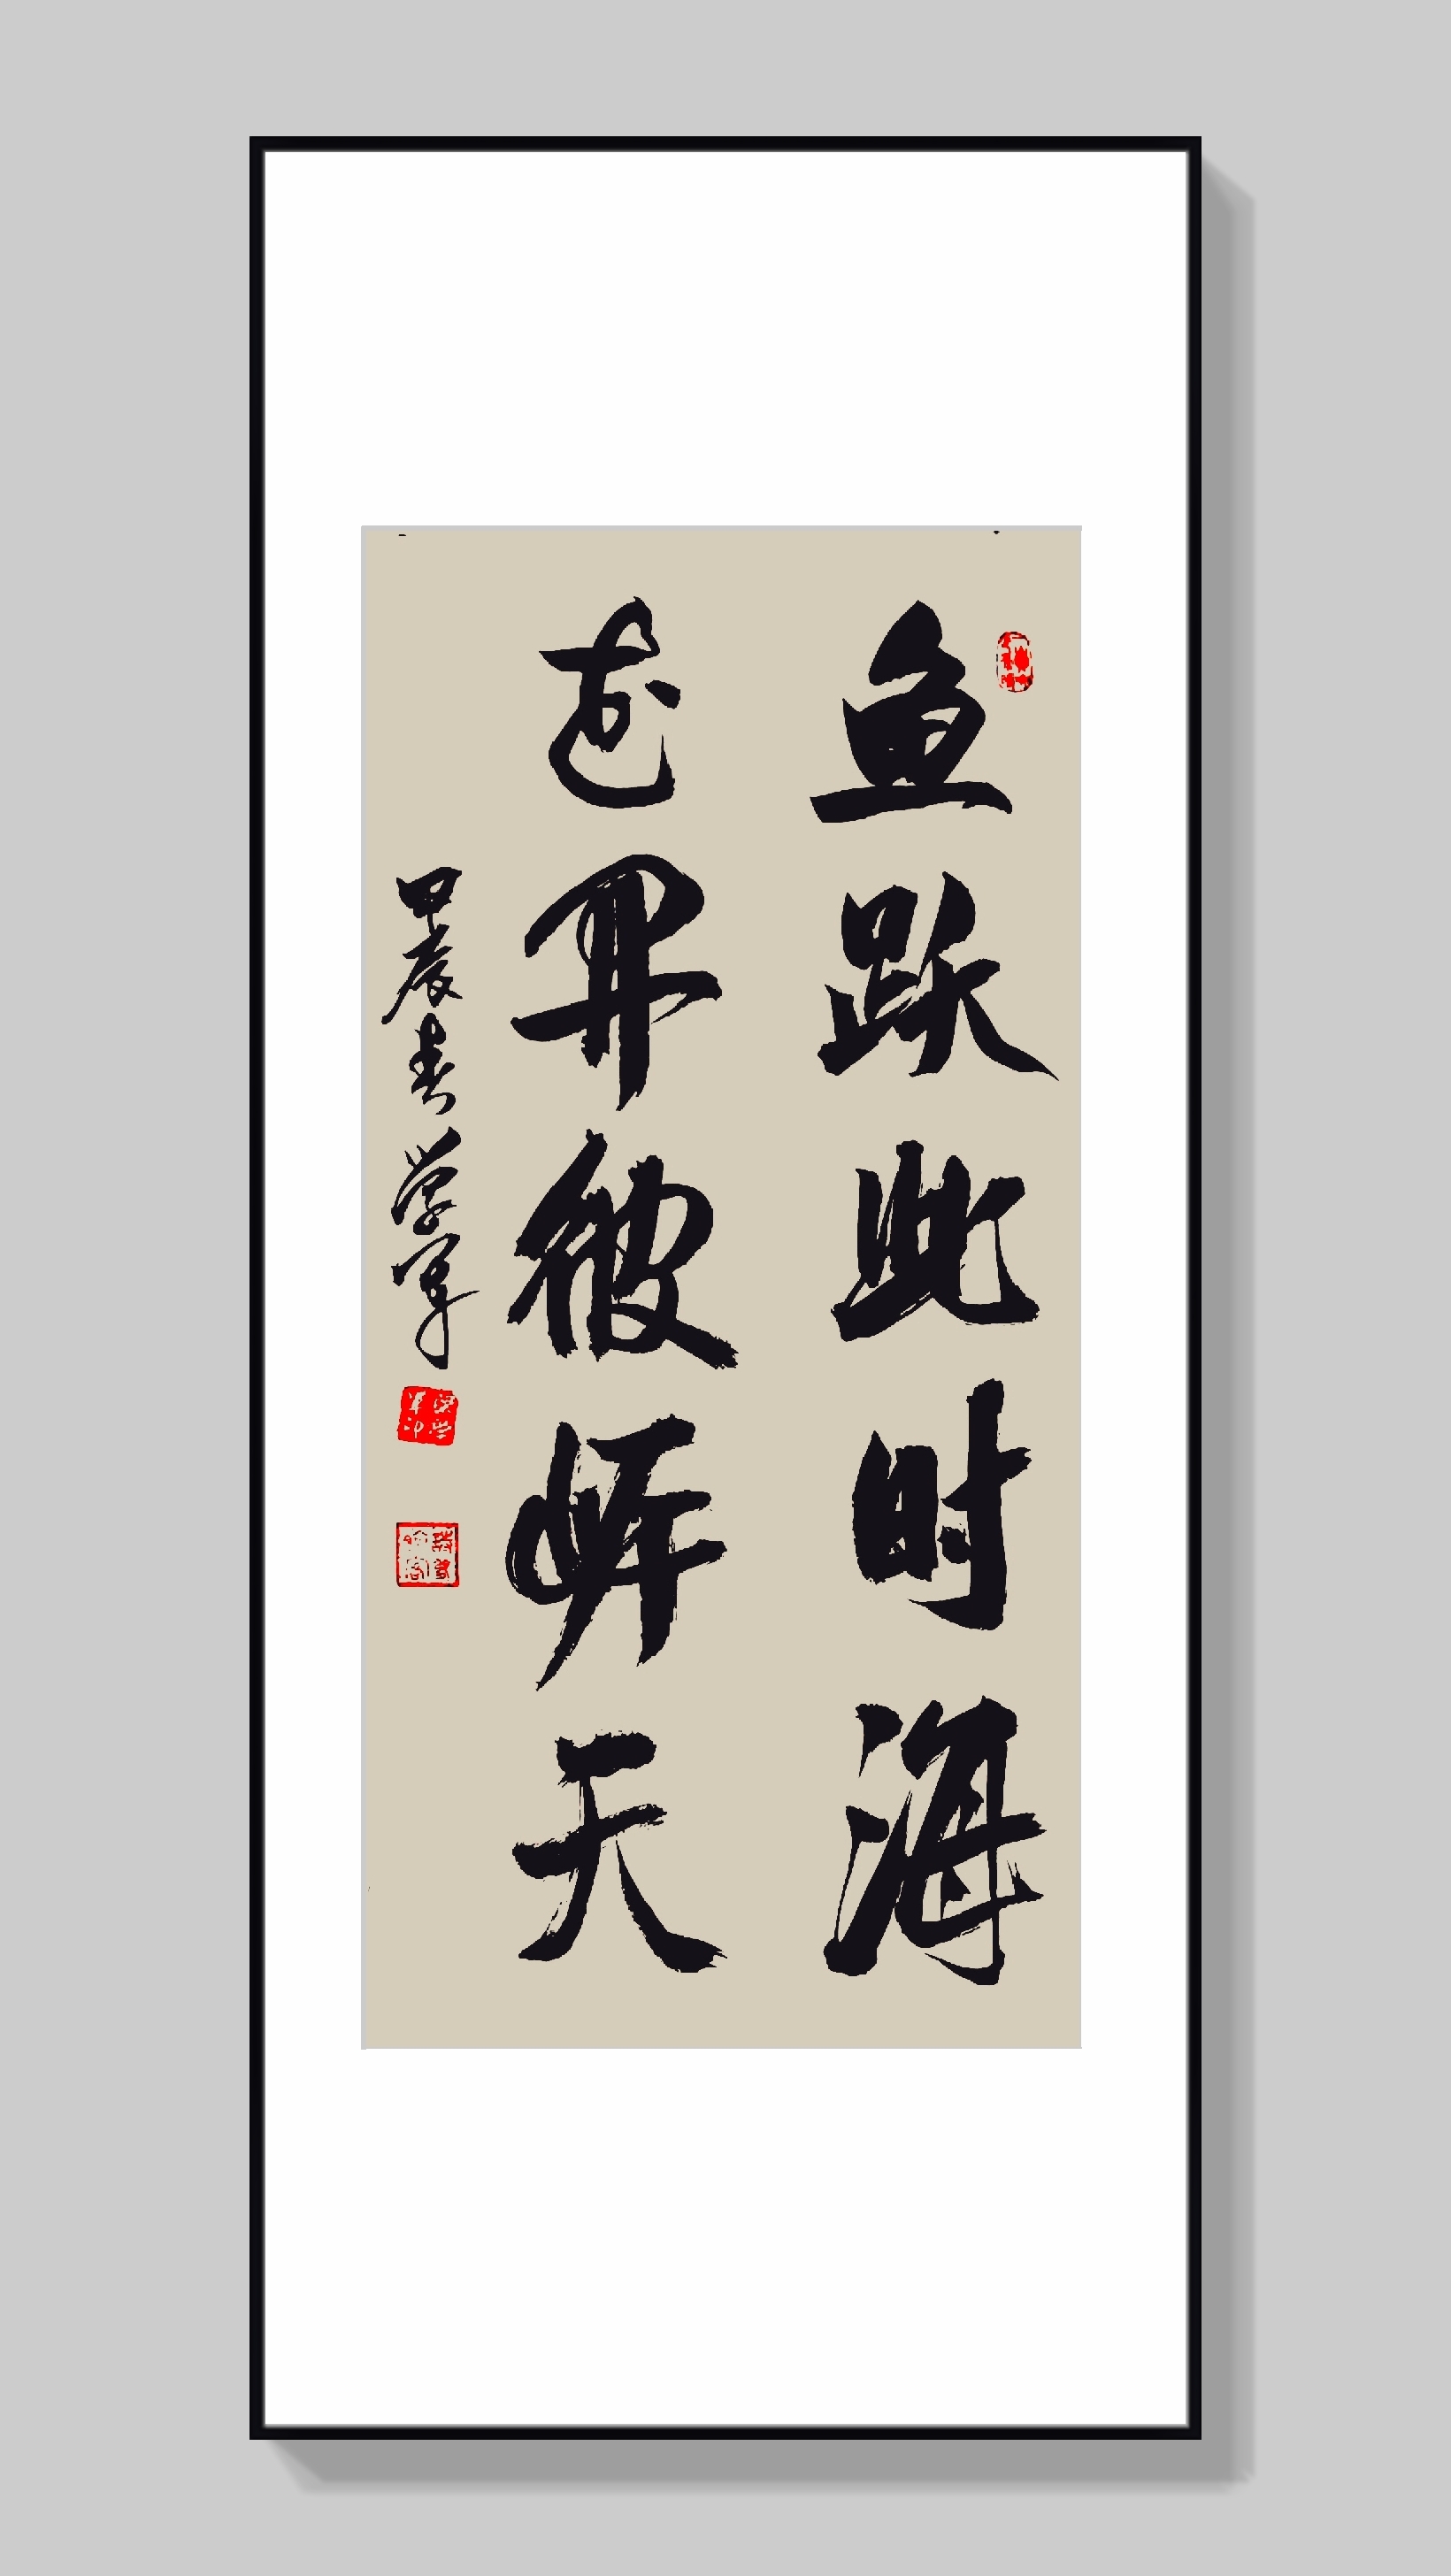 鱼跃此时海
花开彼岍天
甲辰春学军